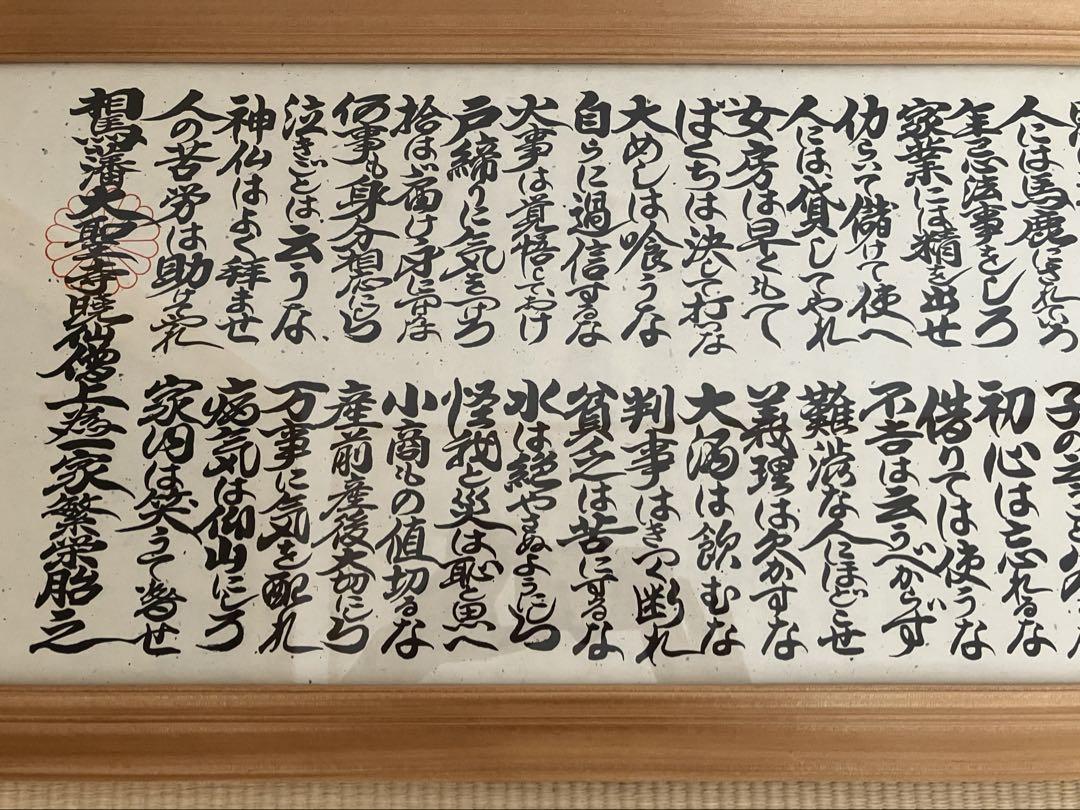 人には馬鹿にされていろ
年忌法事をしろ
家業には精を出せ
仂らいて儲けて使へ
人には貸してやれ
女房は早くもて
ばくちは決して打つな
大めしは喰うな
自らに過信するな
火事は覚悟しておけ
戸締りに気をつけろ
拾はば届け身に
何事も身分相応にしろ
泣きごとは云うな
神仏はよく拝ませ
人の苦労は助けてやれ
初心は忘れるな
借りては使うな
不吉は云うべからず
難渋な人にほどこせ
義理は欠かすな
大酒は飲むな
判事はきつく断れ
貧乏は苦にするな
水は絶やさぬようにしろ
怪我と災は恥と思へ
小商もの値切るな
産前産後大切にしろ
万事に気を配れ
病気は仰山にしろ
家内は笑うて暮せ
相馬藩大聖寺暁仙僧上為一家繁栄胎之